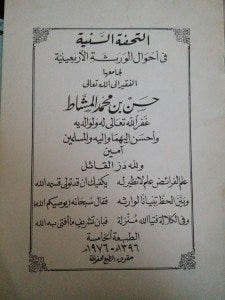 التحفة السنية
في أحوال الورثة الأربعينية
لجامعها
الفقير إلى الله تعالى
حسن بن محمد المشاط
غفر الله تعالى له ولوالديه
وأحسن إليهما وإليه والمسلمين
آمين
ولله در القائل
علم الفرائض علم لا نظير له يكفيك أن قد تولى قسمه الله
وبين الحظ تبيانا لوارثه فقال سبحانه يوصيكم الله
وفي الكلالة فتيا الله منزلة فبان تشريف ما أفتى به الله
الطبعة الخامسة
١٣٩٦ - ١٩٧٦
حقوق الطبع محفوظة